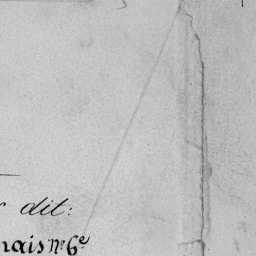 dit:
nais Nº 6ᵉ